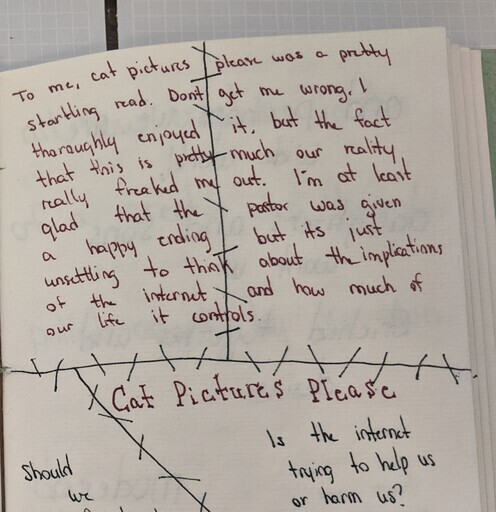 To me, cat pictures please was a pretty
startling read. Dont get me wrong, I
thoroughly enjoyed it, but the fact
that this is pretty much our reality
really freaked me out. I'm at least
glad that the pastor was given
a happy ending but its just
unsettling to think about the implications
of the internet and how much of
our life it controls.
Cat Pictures Please
Is the internet
trying to help us
or harm us?
Should
we